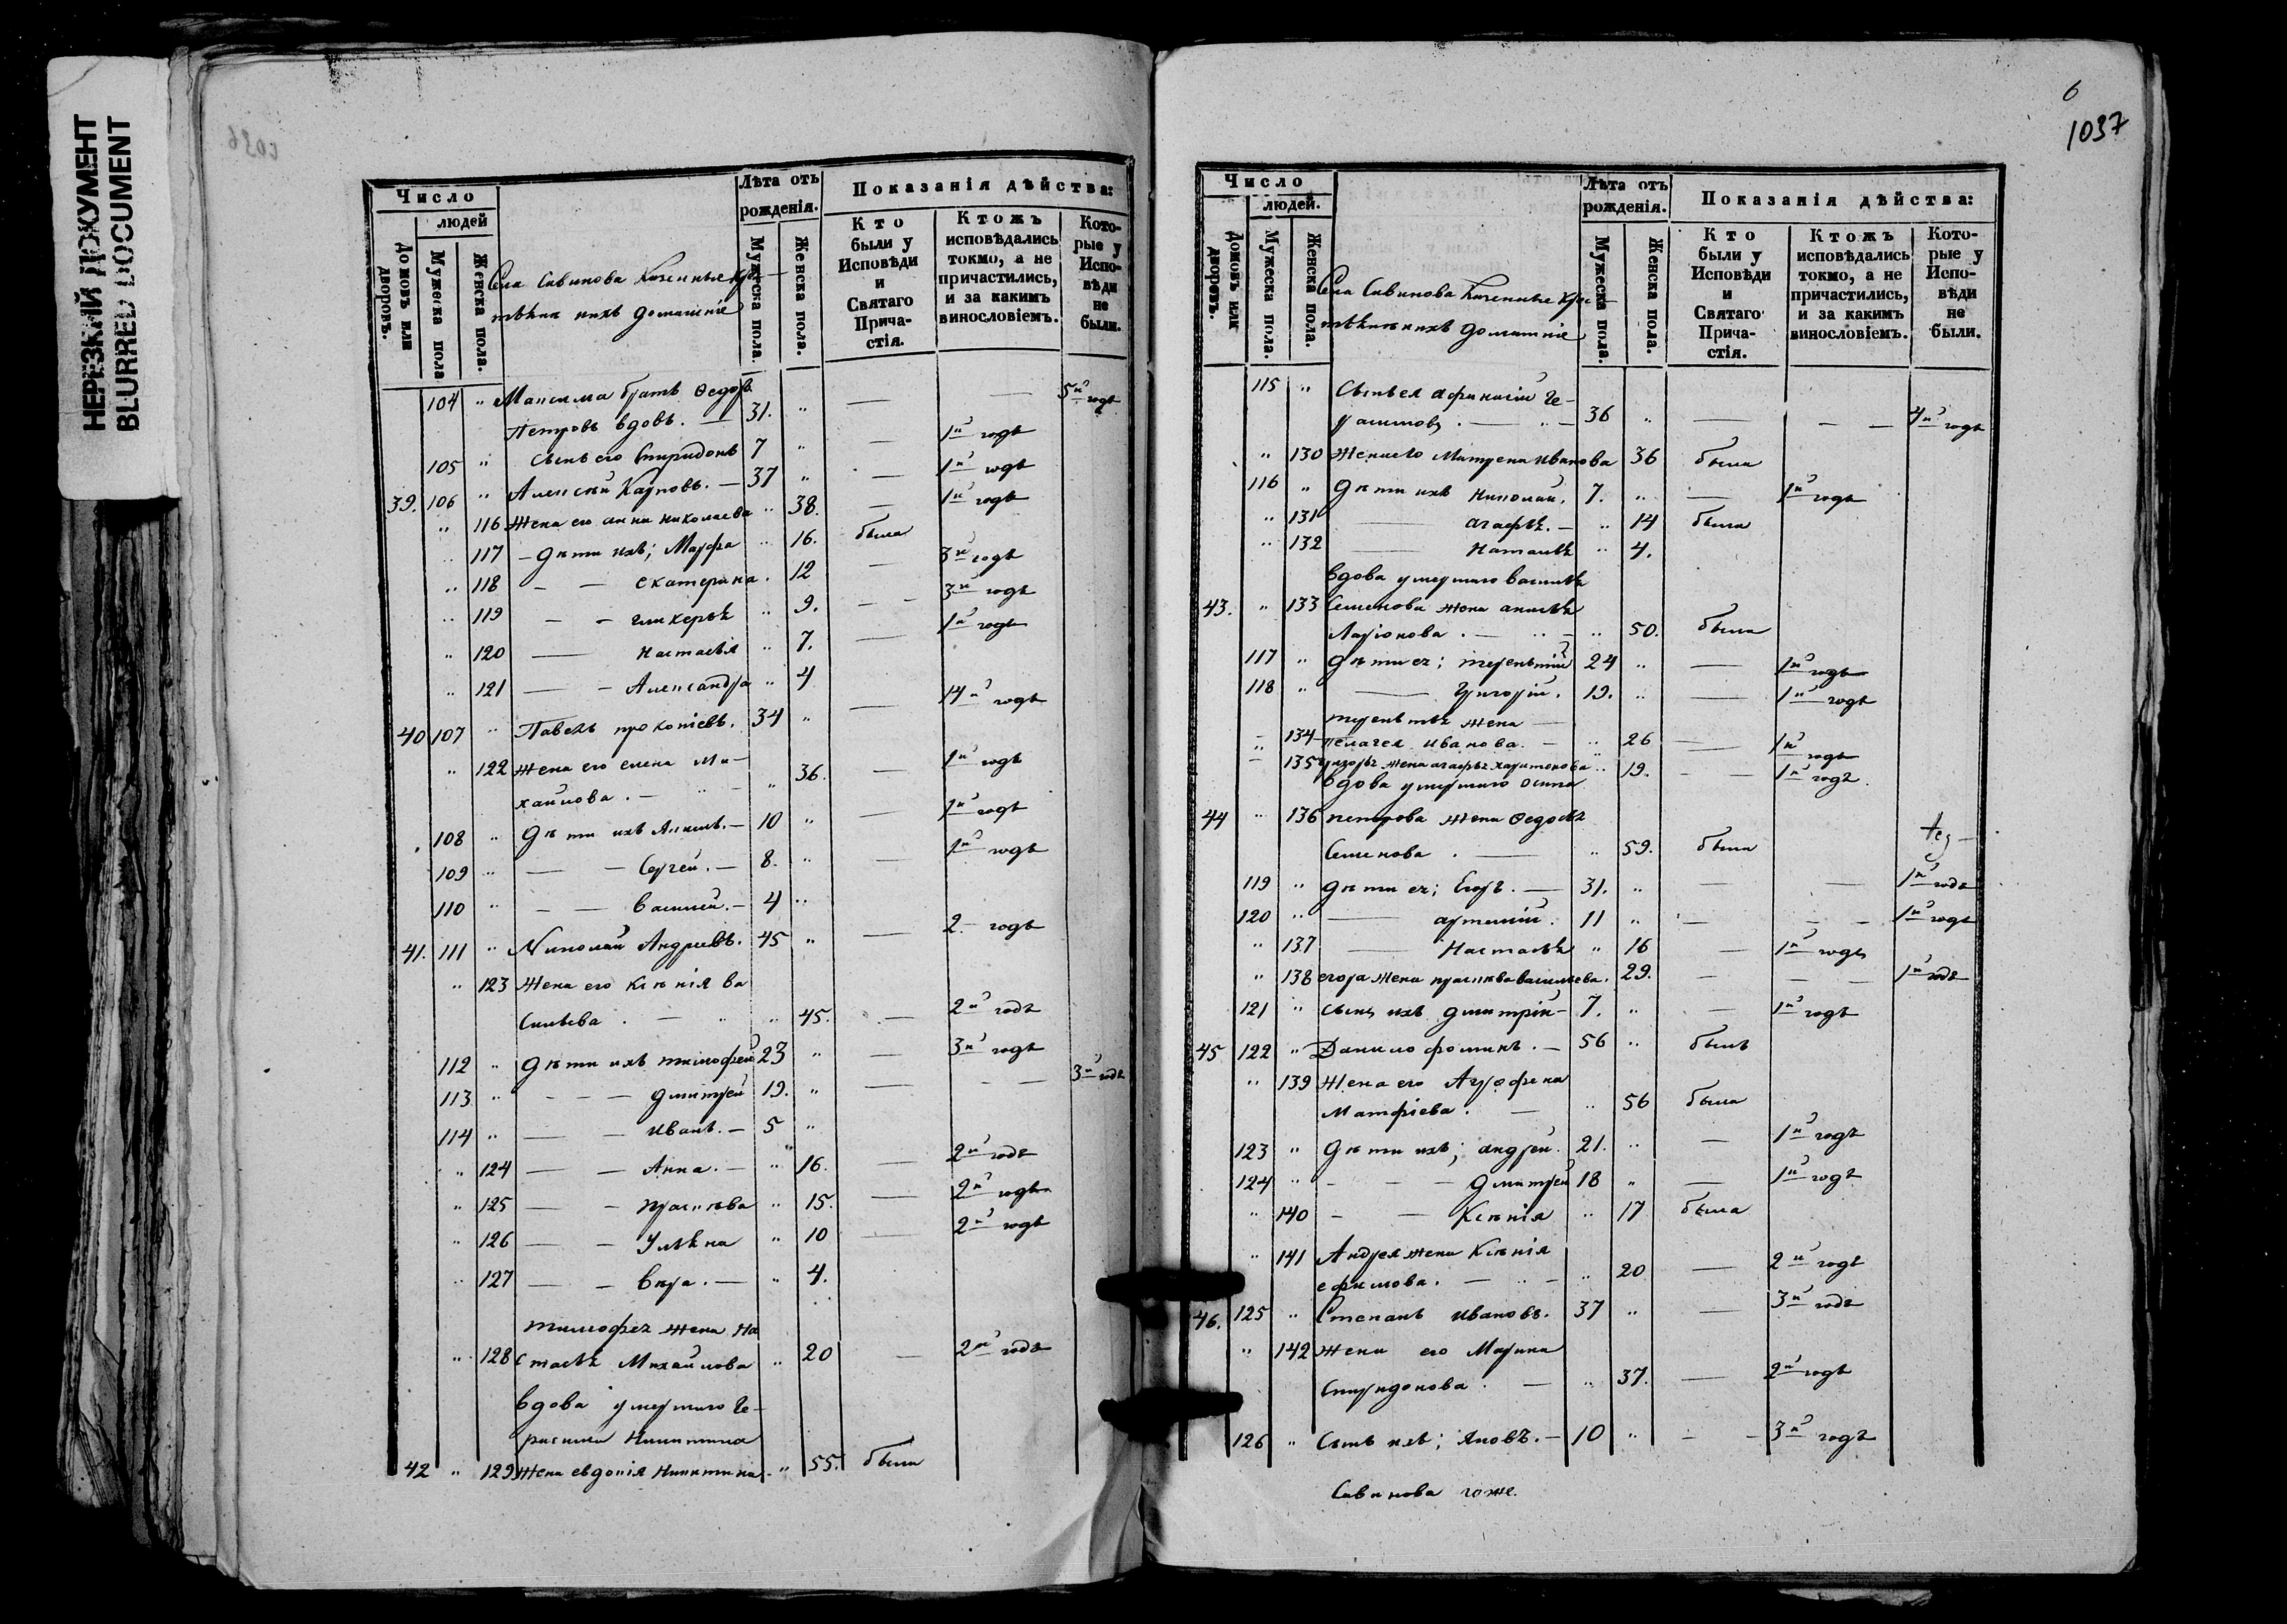 НЕРЕЗКИЙ ДОКУМЕНТ
BLURRED DOCUMENT
Число
людей
Домовъ или дворовъ.
Мужеска пола
Женска пола.
Села Савинова Казенные Кре-
стьяне и ихъ домашніе
Лѣта отъ рожденія.
Мужеска пола.
Женска пола.
Показанія дѣйства:
Кто были у Исповѣди и Святаго Прича-стія.
Ктожъ исповѣдались токмо, а не причастились, и за какимъ винословіемъ.
Кото-рые у Испо-вѣди не были.
104 " Максима братъ Ѳедоръ
Петровъ вдовъ. — 31. " — — 5й годъ
105 " Сынъ его Спиридонъ 7 " — 1й годъ
39. 106 " Алексѣй Карповъ. — 37 " — 1й годъ
" 116 Жена его анна николаева " 38. — 1й годъ
" 117 — дѣти ихъ; Марфа " 16. была
" 118 — — екатерина. 12 — 3й годъ
" 119 — — гликерья " 9. — 3й годъ
" 120 — настасья " 7. — 1й годъ
" 121 — — Александра " 4
40 107 " Павелъ прокопіевъ. 34 " — 14й годъ
" 122 Жена его елена Ми-
хайлова. — " 36. — 1й годъ
108 " дѣти ихъ Акимъ. — 10 " — 1й годъ
109 " — — Сергей. — 8. " — 1й годъ
110 " — — василей. — 4 "
41. 111 " Николай Андреевъ. 45 " — 2. годъ
" 123 Жена его Ксѣнія ва
сильева. — " 45. — 2й годъ
112 " дѣти ихъ тимофей 23 " — 3й годъ
113 " — — — дмитрей 19. " — — — 3й годъ
114 " — — иванъ. — 5 "
" 124 — — Анна. — " 16. — 2й годъ
" 125 — — прасковья " 15. — 2й годъ
" 126 — — Ульяна " 10 — 2й годъ
" 127 — — вѣра. — " 4.
тимофея жена На
" 128 стасья Михайлова " 20 — 2й годъ
вдова умершаго Ге-
расима Никитина
42 " 129 Жена евдокія Никитина. " 55. была
6
1037
Число
людей.
Домовъ или дворовъ.
Мужеска пола.
Женска пола.
Села Савинова Казенные Кре-
стьяне и ихъ домашніе
Лѣта отъ рожденія.
Мужеска пола.
Женска пола.
Показанія дѣйства:
Кто были у Исповѣди и Святаго Прича-стія.
Ктожъ исповѣдались токмо, а не причастились, и за какимъ винословіемъ.
Кото-рые у Испо-вѣди не были.
115 " Сынъ ея афанасій Ге-
расимовъ. — " — 36 " — — — 4й годъ
" 130 Жена его Матрена иванова 36 была
116 " дѣти ихъ николай. 7. " — 1й годъ
" 131 — агафья. — " 14 была
" 132 — наталья " 4.
вдова умершаго василья
43. " 133 Семенова жена акилина
Ларіонова. — " — " 50. была
117 " дѣти ея; терентій 24 " — 1й годъ
118 " — Григорій. 19. " — 1й годъ
терентья жена —
" 134 пелагея иванова. — " 26 — 1й годъ
" 135 григорья жена агафья харитонова " 19. — — 1й годъ
вдова умершаго осипа
44 " 136 петрова жена Ѳедосья
Семенова. — " 59. была
119 " дѣти ея; Егоръ. — 31. " — — 1й годъ
120 " — артемій. 11 " — — — 1й годъ
" 137 — Настасья " 16 — 1й годъ
" 138 егора жена прасковья васильева. 29. — — — 1й годъ
121 " сынъ ихъ дмитрій — 7. " — 1й годъ
45 122 " Данило фоминъ. — 56 " былъ
" 139 Жена его Аграфена
Матфіева. — " 56 была
123 " дѣти ихъ; андрей. 21. " — 1й годъ
124 " — — — дмитрей 18 " — 1й годъ
" 140 — — Ксѣнія " 17 была
" 141 Андрея жена Ксѣнія
ефимова. — " — " 20 — 2й годъ
46. 125 " Степанъ ивановъ. 37 " — 3й годъ
" 142 Жена его Марина
Спиридонова. — " 37. — 2й годъ
126 " Сынъ ихъ; яковъ. — 10 " — — 3й годъ
Савинова тоже.